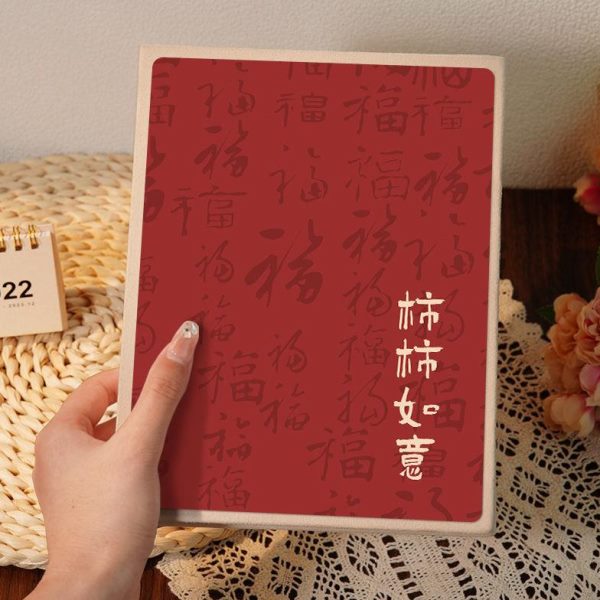 柿柿如意
福
22